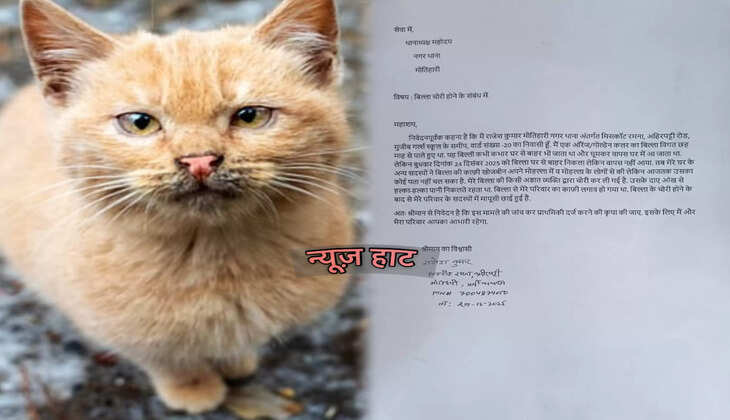 सेवा में,
थानाध्यक्ष महोदय
नगर थाना
मोतिहारी
विषय : बिल्ला चोरी होने के संबंध में.
महाशय,
निवेदनपूर्वक कहना है कि मैं राजेश कुमार मोतिहारी नगर थाना अंतर्गत मिसकॉट रमना, अहिरपट्टी रोड,
मुजीब गर्ल्स स्कूल के समीप, वार्ड संख्या -20 का निवासी हूँ. मैं एक ऑरेंज/गोल्डेन कलर का बिल्ला विगत छह
माह से पाले हुए था. यह बिल्ली कभी कभार घर से बाहर भी जाता था और घूमकर वापस घर में आ जाता था.
लेकिन बुधवार दिनांक 24 दिसंबर 2025 को बिल्ला घर से बाहर निकला लेकिन वापस नहीं आया. तब मेरे घर के
अन्य सदस्यों ने बिल्ला की काफी खोजबीन अपने मोहल्ला में व मोहल्ला के लोगों से की लेकिन आजतक उसका
कोई पता नहीं चल सका है. मेरे बिल्ला की किसी अज्ञात व्यक्ति द्वारा चोरी कर ली गई है. उसके दाए आँख से
हल्का-हल्का पानी निकलते रहता था. बिल्ला से मेरे परिवार का काफी लगाव हो गया था. बिल्ला के चोरी होने के
बाद से मेरे परिवार के सदस्यों में मायूसी छाई हुई है.
अतः श्रीमान से निवेदन है कि इस मामले की जांच कर प्राथमिकी दर्ज करने की कृपा की जाए. इसके लिए मैं और
मेरा परिवार आपका आभारी रहेगा.
श्रीमान का विश्वासी
राजेश कुमार
न्यूज़ हाट